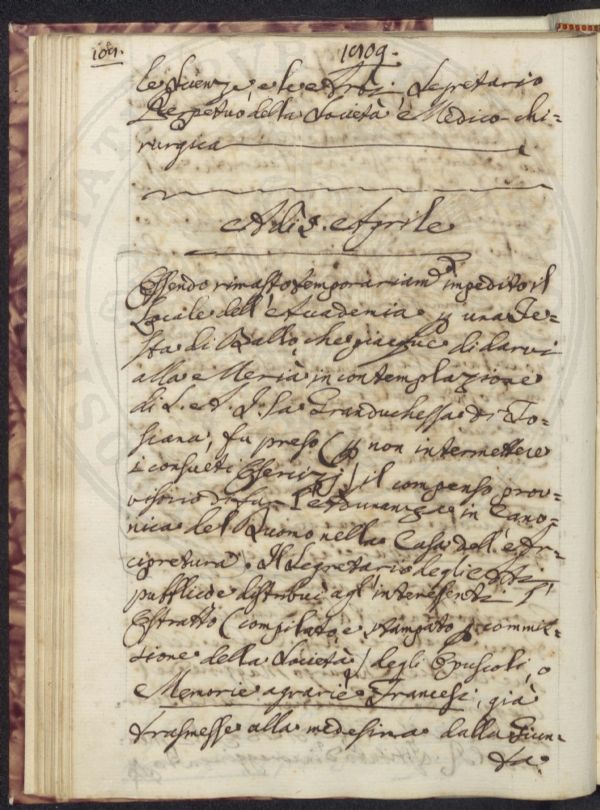 184.
1809.
le Scienze, e le Arti, Segretario
Perpetuo della Società Medico-chi=
rurgica
Adi 9. Aprile
Essendo rimasto temporariam.te impedito il
Locale dell'Accademia p una Fe=
sta di Ballo, che piacque di darvi
alla Merià in contemplazione
di S. A. I. la Granduchessa di To=
scana, fu preso (p non intermettere
i consueti Esercizj) il compenso prov=
visorio di far l'Adunanza in Cano=
nica del Duomo nella Casa dell'Ar=
cipretura. Il Segretario degli Atti
pubblici distribuì agl'interessenti l'
Estratto (compilato, e stampato p commis=
sione della Società) degli Opuscoli, o
Memorie agrarie Francesi, già
trasmesse alla medesima dalla Giun=
ta